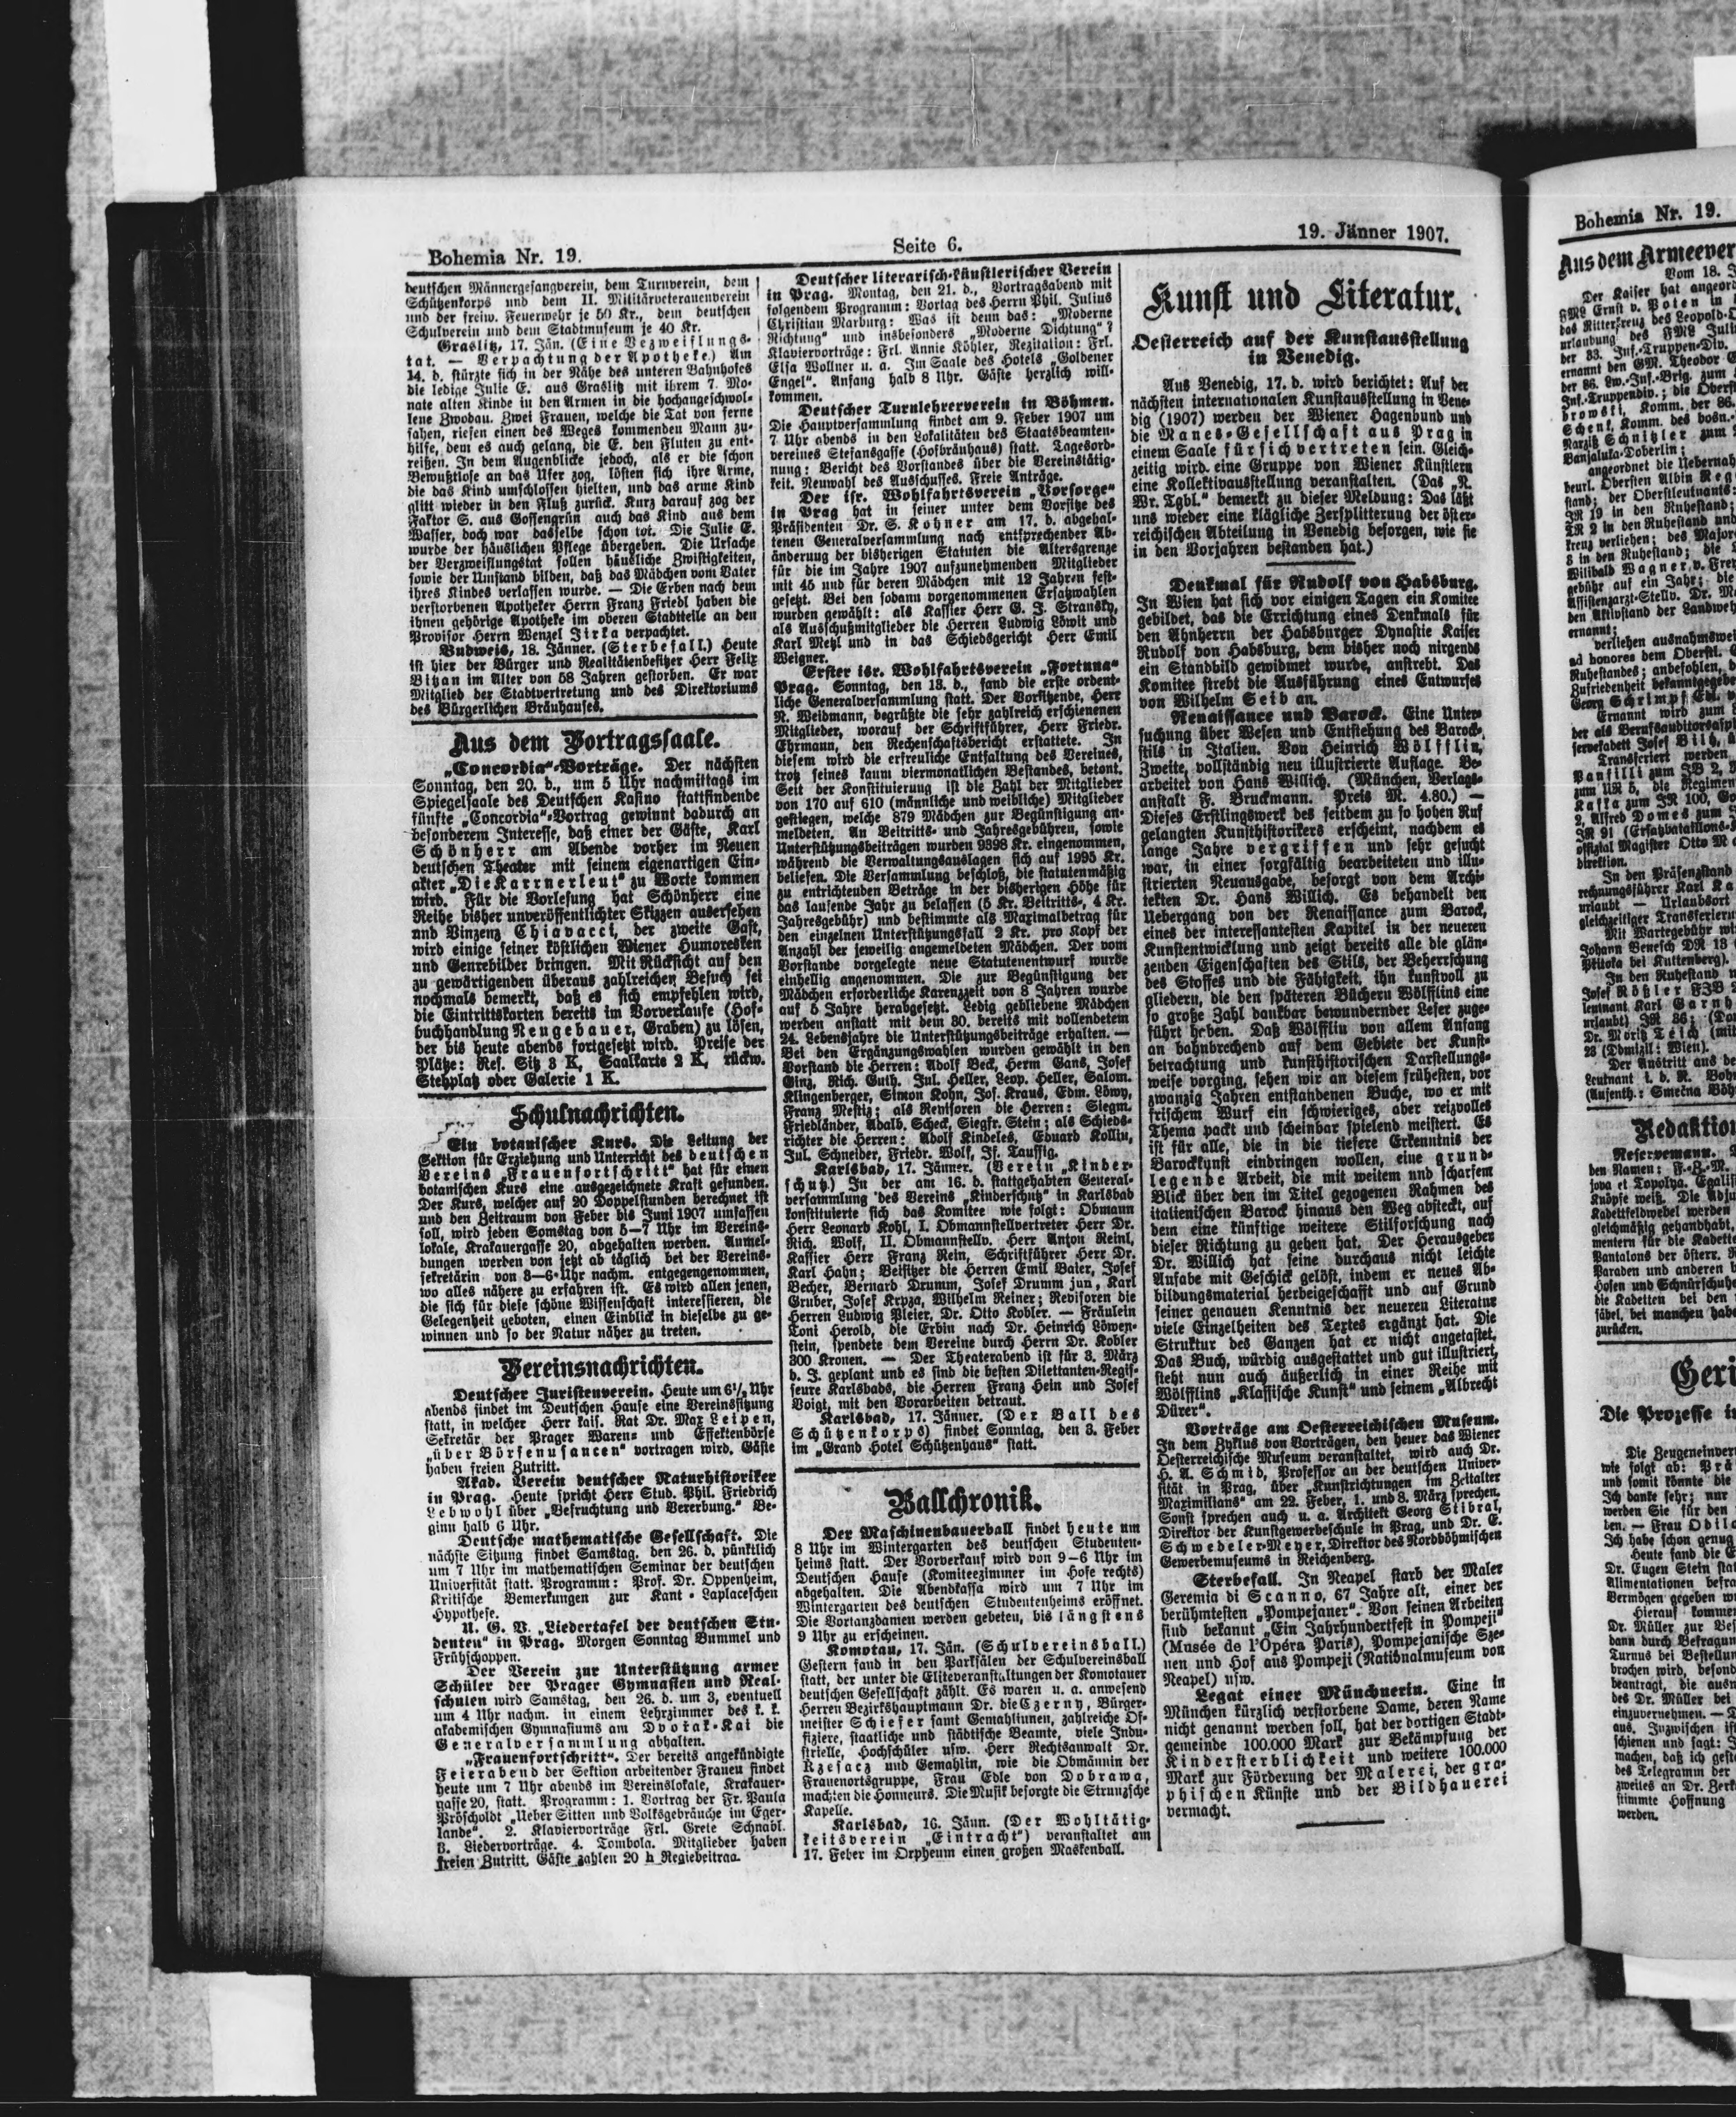 Bohemia Nr. 19.
Seite 6.
19. Jänner 1907.
deutschen Männergesangverein, dem Turnverein, dem
Schützenkorps und dem II. Militärveteranenverein
und der freiw. Feuerwehr je 50 Kr., dem deutschen
Schulverein und dem Stadtmuseum je 40 Kr.
Graslitz, 17. Jän. (Eine Verzweiflungs-
tat. — Verpachtung der Apotheke.) Am
14. d. stürzte sich in der Nähe des unteren Bahnhofes
die ledige Julie E. aus Graslitz mit ihrem 7 Mo-
nate alten Kinde in den Armen in die hochangeschwol-
lene Zwodau. Zwei Frauen, welche die Tat von ferne
sahen, riefen einen des Weges kommenden Mann zu-
hilfe, dem es auch gelang, die E. den Fluten zu ent-
reißen. In dem Augenblicke jedoch, als er die schon
Bewußtlose an das Ufer zog, lösten sich ihre Arme,
die das Kind umschlossen hielten, und das arme Kind
glitt wieder in den Fluß zurück. Kurz darauf zog der
Faktor S. aus Gossengrün auch das Kind aus dem
Wasser, doch war dasselbe schon tot. Die Julie E.
wurde der häuslichen Pflege übergeben. Die Ursache
der Verzweiflungstat sollen häusliche Zwistigkeiten,
sowie der Umstand bilden, daß das Mädchen vom Vater
ihres Kindes verlassen wurde. — Die Erben nach dem
verstorbenen Apotheker Herrn Franz Friedl haben die
ihnen gehörige Apotheke im oberen Stadtteile an den
Provisor Herrn Wenzel Jirka verpachtet.
Budweis, 18. Jänner. (Sterbefall.) Heute
ist hier der Bürger und Realitätenbesitzer Herr Felix
Bitzan im Alter von 58 Jahren gestorben. Er war
Mitglied der Stadtvertretung und des Direktoriums
des Bürgerlichen Bräuhauses.
Aus dem Vortragssaale.
„Concordia“-Vorträge. Der nächsten
Sonntag, den 20. d., um 5 Uhr nachmittags im
Spiegelsaale des Deutschen Kasino stattfindende
fünfte „Concordia“-Vortrag gewinnt dadurch an
besonderem Interesse, daß einer der Gäste, Karl
Schönherr am Abende vorher im Neuen
deutschen Theater mit seinem eigenartigen Ein-
akter „Die Karrnerleut“ zu Worte kommen
wird. Für die Vorlesung hat Schönherr eine
Reihe bisher unveröffentlichter Skizzen ausersehen
und Vinzenz Chiavacci, der zweite Gast,
wird einige seiner köstlichen Wiener Humoresken
und Genrebilder bringen. Mit Rücksicht auf den
zu gewärtigenden überaus zahlreichen Besuch sei
nochmals bemerkt, daß es sich empfehlen wird,
die Eintrittskarten bereits im Vorverkaufe (Hof-
buchhandlung Neugebauer, Graben) zu lösen,
der bis heute abends fortgesetzt wird. Preise der
Plätze: Res. Sitz 3 K, Saalkarte 2 K, rückw.
Stehplatz oder Galerie 1 K.
Schulnachrichten.
Ein botanischer Kurs. Die Leitung der
Sektion für Erziehung und Unterricht des deutschen
Vereins „Frauenfortschritt“ hat für einen
botanischen Kurs eine ausgezeichnete Kraft gefunden.
Der Kurs, welcher auf 20 Doppelstunden berechnet ist
und den Zeitraum von Feber bis Juni 1907 umfassen
soll, wird jeden Samstag von 5—7 Uhr im Vereins-
lokale, Krakauergasse 20, abgehalten werden. Anmel-
dungen werden von jetzt ab täglich bei der Vereins-
sekretärin von 3—6 Uhr nachm. entgegengenommen,
wo alles nähere zu erfahren ist. Es wird allen jenen,
die sich für diese schöne Wissenschaft interessieren, die
Gelegenheit geboten, einen Einblick in dieselbe zu ge-
winnen und so der Natur näher zu treten.
Vereinsnachrichten.
Deutscher Juristenverein. Heute um 6½ Uhr
abends findet im Deutschen Hause eine Vereinssitzung
statt, in welcher Herr kais. Rat Dr. Max Leipen,
Sekretär der Prager Waren- und Effektenbörse
„über Börsenusancen“ vortragen wird. Gäste
haben freien Zutritt.
Akad. Verein deutscher Naturhistoriker
in Prag. Heute spricht Herr Stud. Phil. Friedrich
Lebwohl über „Befruchtung und Vererbung.“ Be-
ginn halb 6 Uhr.
Deutsche mathematische Gesellschaft. Die
nächste Sitzung findet Samstag, den 26. d. pünktlich
um 7 Uhr im mathematischen Seminar der deutschen
Universität statt. Programm: Prof. Dr. Oppenheim,
Kritische Bemerkungen zur Kant-Laplaceschen
Hypothese.
U. G. V. „Liedertafel der deutschen Stu-
denten“ in Prag. Morgen Sonntag Bummel und
Frühschoppen.
Der Verein zur Unterstützung armer
Schüler der Prager Gymnasien und Real-
schulen wird Samstag, den 26. d. um 3, eventuell
um 4 Uhr nachm. in einem Lehrzimmer des k. k.
akademischen Gymnasiums am Dvořak-Kai die
Generalversammlung abhalten.
„Frauenfortschritt“. Der bereits angekündigte
Feierabend der Sektion arbeitender Frauen findet
heute um 7 Uhr abends im Vereinslokale, Krakauer-
gasse 20, statt. Programm: 1. Vortrag der Fr. Paula
Pröscholdt „Ueber Sitten und Volksgebräuche im Eger-
lande“. 2. Klaviervorträge Frl. Grete Schnabl.
3. Liedervorträge. 4. Tombola. Mitglieder haben
freien Zutritt, Gäste zahlen 20 h Regiebeitrag.
Deutscher literarisch-künstlerischer Verein
in Prag. Montag, den 21. d., Vortragsabend mit
folgendem Programm: Vortag des Herrn Phil. Julius
Christian Marburg: Was ist denn das: „Moderne
Richtung“ und insbesonders „Moderne Dichtung“?
Klaviervorträge: Frl. Annie Köhler, Rezitation: Frl.
Elsa Wollner u. a. Im Saale des Hotels „Goldener
Engel“. Anfang halb 8 Uhr. Gäste herzlich will-
kommen.
Deutscher Turnlehrerverein in Böhmen.
Die Hauptversammlung findet am 9. Feber 1907 um
7 Uhr abends in den Lokalitäten des Staatsbeamten-
vereines Stefansgasse (Hofbräuhaus) statt. Tagesord-
nung: Bericht des Vorstandes über die Vereinstätig-
keit. Neuwahl des Ausschusses. Freie Anträge.
Der isr. Wohlfahrtsverein „Vorsorge“
in Prag hat in seiner unter dem Vorsitze des
Präsidenten Dr. S. Kohner am 17. d. abgehal-
tenen Generalversammlung nach entsprechender Ab-
änderung der bisherigen Statuten die Altersgrenze
für die im Jahre 1907 aufzunehmenden Mitglieder
mit 45 und für deren Mädchen mit 12 Jahren fest-
gesetzt. Bei den sodann vorgenommenen Ersatzwahlen
wurden gewählt: als Kassier Herr G. J. Stransky,
als Ausschußmitglieder die Herren Ludwig Löwit und
Karl Metzl und in das Schiedsgericht Herr Emil
Weigner.
Erster isr. Wohlfahrtsverein „Fortuna“
Prag. Sonntag, den 13. d., fand die erste ordent-
liche Generalversammlung statt. Der Vorsitzende, Herr
R. Weidmann, begrüßte die sehr zahlreich erschienenen
Mitglieder, worauf der Schriftführer, Herr Friedr.
Ehrmann, den Rechenschaftsbericht erstattete. In
diesem wird die erfreuliche Entfaltung des Vereines,
trotz seines kaum viermonatlichen Bestandes, betont.
Seit der Konstituierung ist die Zahl der Mitglieder
von 170 auf 610 (männliche und weibliche) Mitglieder
gestiegen, welche 879 Mädchen zur Begünstigung an-
meldeten. An Beitritts- und Jahresgebühren, sowie
Unterstützungsbeiträgen wurden 9398 Kr. eingenommen,
während die Verwaltungsauslagen sich auf 1995 Kr.
beliefen. Die Versammlung beschloß, die statutenmäßig
zu entrichtenden Beträge in der bisherigen Höhe für
das laufende Jahr zu belassen (5 Kr. Beitritts-, 4 Kr.
Jahresgebühr) und bestimmte als Maximalbetrag für
den einzelnen Unterstützungsfall 2 Kr. pro Kopf der
Anzahl der jeweilig angemeldeten Mädchen. Der vom
Vorstande vorgelegte neue Statutenentwurf wurde
einhellig angenommen. Die zur Begünstigung der
Mädchen erforderliche Karenzzeit von 8 Jahren wurde
auf 5 Jahre herabgesetzt. Ledig gebliebene Mädchen
werden anstatt mit dem 30. bereits mit vollendetem
24. Lebensjahre die Unterstützungsbeiträge erhalten. —
Bei den Ergänzungswahlen wurden gewählt in den
Vorstand die Herren: Adolf Beck, Herm Gans, Josef
Ginz, Rich. Guth. Jul. Heller, Leop. Heller, Salom.
Klingenberger, Simon Kohn, Jos. Kraus, Edm. Löwy,
Franz Mestiz; als Revisoren die Herren: Siegm.
Friedländer, Adalb. Scheck, Siegfr. Stein; als Schieds-
richter die Herren: Adolf Kindeles, Eduard Kollin,
Jul. Schneider, Friedr. Wolf, Js. Taussig.
Karlsbad, 17. Jänner. (Verein „Kinder-
schutz.) In der am 16. d. stattgehabten General-
versammlung des Vereins „Kinderschutz“ in Karlsbad
konstituierte sich das Komitee wie folgt: Obmann
Herr Leonard Kohl, I. Obmannstellvertreter Herr Dr.
Rich. Wolf, II. Obmannstellv. Herr Anton Reinl,
Kassier Herr Franz Rein, Schriftführer Herr Dr.
Karl Hahn; Beisitzer die Herren Emil Baier, Josef
Becher, Bernard Drumm, Josef Drumm jun, Karl
Gruber, Josef Krpza, Wilhelm Reiner; Revisoren die
Herren Ludwig Pleier, Dr. Otto Kobler. — Fräulein
Toni Herold, die Erbin nach Dr. Heinrich Löwen-
stein, spendete dem Vereine durch Herrn Dr. Kobler
300 Kronen. — Der Theaterabend ist für 3. März
d. J. geplant und es sind die besten Dilettanten-Regis-
seure Karlsbads, die Herren Franz Hein und Josef
Voigt, mit den Vorarbeiten betraut.
Karlsbad, 17. Jänner. (Der Ball des
Schützenkorps) findet Sonntag, den 3. Feber
im „Grand Hotel Schützenhaus“ statt.
Ballchronik.
Der Maschinenbauerball findet heute um
8 Uhr im Wintergarten des deutschen Studenten-
heims statt. Der Vorverkauf wird von 9—6 Uhr im
Deutschen Hause (Komiteezimmer im Hofe rechts)
abgehalten. Die Abendkassa wird um 7 Uhr im
Wintergarten des deutschen Studentenheims eröffnet.
Die Vortanzdamen werden gebeten, bis längstens
9 Uhr zu erscheinen.
Komotau, 17. Jän. (Schulvereinsball.)
Gestern fand in den Parksälen der Schulvereinsball
statt, der unter die Eliteveranstaltungen der Komotauer
deutschen Gesellschaft zählt. Es waren u. a. anwesend
Herren Bezirkshauptmann Dr. die Czerny, Bürger-
meister Schiefer samt Gemahlinnen, zahlreiche Of-
fiziere, staatliche und städtische Beamte, viele Indu-
strielle, Hochschüler usw. Herr Rechtsanwalt Dr.
Rzesacz und Gemahlin, wie die Obmännin der
Frauenortsgruppe, Frau Edle von Dobrawa,
machten die Honneurs. Die Musik besorgte die Strunzsche
Kapelle.
Karlsbad, 16. Jänn. (Der Wohltätig-
keitsverein „Eintracht“) veranstaltet am
17. Feber im Orpheum einen großen Maskenball.
Kunst und Literatur.
Oesterreich auf der Kunstausstellung
in Venedig.
Aus Venedig, 17. d. wird berichtet: Auf der
nächsten internationalen Kunstausstellung in Vene-
dig (1907) werden der Wiener Hagenbund und
die Manes-Gesellschaft aus Prag in
einem Saale für sich vertreten sein. Gleich-
zeitig wird eine Gruppe von Wiener Künstlern
eine Kollektivausstellung veranstalten. (Das „N.
Wr. Tgbl.“ bemerkt zu dieser Meldung: Das läßt
uns wieder eine klägliche Zersplitterung der öster-
reichischen Abteilung in Venedig besorgen, wie sie
in den Vorjahren bestanden hat.)
Denkmal für Rudolf von Habsburg.
In Wien hat sich vor einigen Tagen ein Komitee
gebildet, das die Errichtung eines Denkmals für
den Ahnherrn der Habsburger Dynastie Kaiser
Rudolf von Habsburg, dem bisher noch nirgends
ein Standbild gewidmet wurde, anstrebt. Das
Komitee strebt die Ausführung eines Entwurfes
von Wilhelm Seib an.
Renaissance und Barock. Eine Unter-
suchung über Wesen und Entstehung des Barock-
stils in Italien. Von Heinrich Wölfflin,
Zweite, vollständig neu illustrierte Auflage. Be-
arbeitet von Hans Willich. (München, Verlags-
anstalt F. Bruckmann. Preis M. 4.80.) —
Dieses Erstlingswerk des seitdem zu so hohen Ruf
gelangten Kunsthistorikers erscheint, nachdem es
lange Jahre vergriffen und sehr gesucht
war, in einer sorgfältig bearbeiteten und illu-
strierten Neuausgabe, besorgt von dem Archi-
tekten Dr. Hans Willich. Es behandelt den
Uebergang von der Renaissance zum Barock,
eines der interessantesten Kapitel in der neueren
Kunstentwicklung und zeigt bereits alle die glän-
zenden Eigenschaften des Stils, der Beherrschung
des Stoffes und die Fähigkeit, ihn kunstvoll zu
gliedern, die den späteren Büchern Wölfflins eine
so große Zahl dankbar bewundernder Leser zuge-
führt heben. Daß Wölfflin von allem Anfang
an bahnbrechend auf dem Gebiete der Kunst-
betrachtung und kunsthistorischen Darstellungs-
weise vorging, sehen wir an diesem frühesten, vor
zwanzig Jahren entstandenen Buche, wo er mit
frischem Wurf ein schwieriges, aber reizvolles
Thema packt und scheinbar spielend meistert. Es
ist für alle, die in die tiefere Erkenntnis der
Barockkunst eindringen wollen, eine grund-
legende Arbeit, die mit weitem und scharfem
Blick über den im Titel gezogenen Rahmen des
italienischen Barock hinaus den Weg absteckt, auf
dem eine künftige weitere Stilforschung nach
dieser Richtung zu gehen hat. Der Herausgeber
Dr. Willich hat seine durchaus nicht leichte
Aufabe mit Geschick gelöst, indem er neues Ab-
bildungsmaterial herbeigeschafft und auf Grund
seiner genauen Kenntnis der neueren Literatur
viele Einzelheiten des Textes ergänzt hat. Die
Struktur des Ganzen hat er nicht angetastet.
Das Buch, würdig ausgestattet und gut illustriert,
steht nun auch äußerlich in einer Reihe mit
Wölfflins „Klassische Kunst“ und seinem „Albrecht
Dürer“.
Vorträge am Oesterreichischen Museum.
In dem Zyklus von Vorträgen, den heuer das Wiener
Oesterreichische Museum veranstaltet, wird auch Dr.
H. A. Schmid, Professor an der deutschen Univer-
sität in Prag, über „Kunstrichtungen im Zeitalter
Maximilians“ am 22. Feber, 1. und 8. März sprechen.
Sonst sprechen auch u. a. Architekt Georg Stibral,
Direktor der Kunstgewerbeschule in Prag, und Dr. E.
Schwedeler-Meyer, Direktor des Nordböhmischen
Gewerbemuseums in Reichenberg.
Sterbefall. In Neapel starb der Maler
Geremia di Scanno, 67 Jahre alt, einer der
berühmtesten „Pompejaner“. Von seinen Arbeiten
sind bekannt „Ein Jahrhundertfest in Pompeji“
(Musée de l'Opéra Paris), Pompejanische Sze-
nen und Hof aus Pompeji (Nationalmuseum von
Neapel) usw.
Legat einer Münchnerin. Eine in
München kürzlich verstorbene Dame, deren Name
nicht genannt werden soll, hat der dortigen Stadt-
gemeinde 100.000 Mark zur Bekämpfung der
Kindersterblichkeit und weitere 100.000
Mark zur Förderung der Malerei, der gra-
phischen Künste und der Bildhauerei
vermacht.
Bohemia Nr. 19.
Aus dem Armeever
Vom 18. J
Der Kaiser hat angeord
Redaktion
Reservemann.
Geri
Die Prozesse i
Die Zeugeneinver
wie folgt ab: Prä
und somit könnte die
Ich danke sehr; nur
werden Sie für den
Ich habe schon genug
Heute fand die E
Dr. Eugen Stein stat
Alimentationen befra
Vermögen gegeben w
Hierauf kommt
Dr. Müller zur Bes
dann durch Befragun
Turnus bei Bestellun
brochen wird, besond
beantragt, die ausn
des Dr. Müller bei
einzuvernehmen. —
aus. Inzwischen ist
schienen und sagt: J
machen, daß ich gest
des Telegramm der
zweites an Dr. Zerk
stimmte Hoffnung
werden.